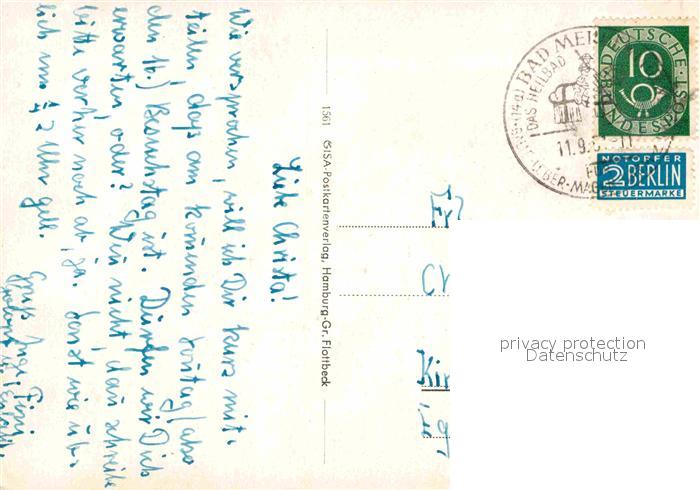 Liebe Christa!
Wie versprochen, will ich Dir kurz mit-
teilen, dass am kommenden Sonntag (also
den 16.) Besuchstag ist. Dürfen wir Dich
erwarten, oder? Wenn nicht, dann schreibe
bitte vorher noch ab, ja. Sonst wie üb-
lich um 1/2 2 Uhr gell.
Gruss
1561 ©ISA-Postkartenverlag, Hamburg-Gr. Flottbeck
BAD MER
DAS HEILBAD
11.9.
LEBER-MAG
DEUTSCHE
BUNDESPOST
10
NOTOPFER
2 BERLIN
STEUERMARKE
privacy protection
Datenschutz